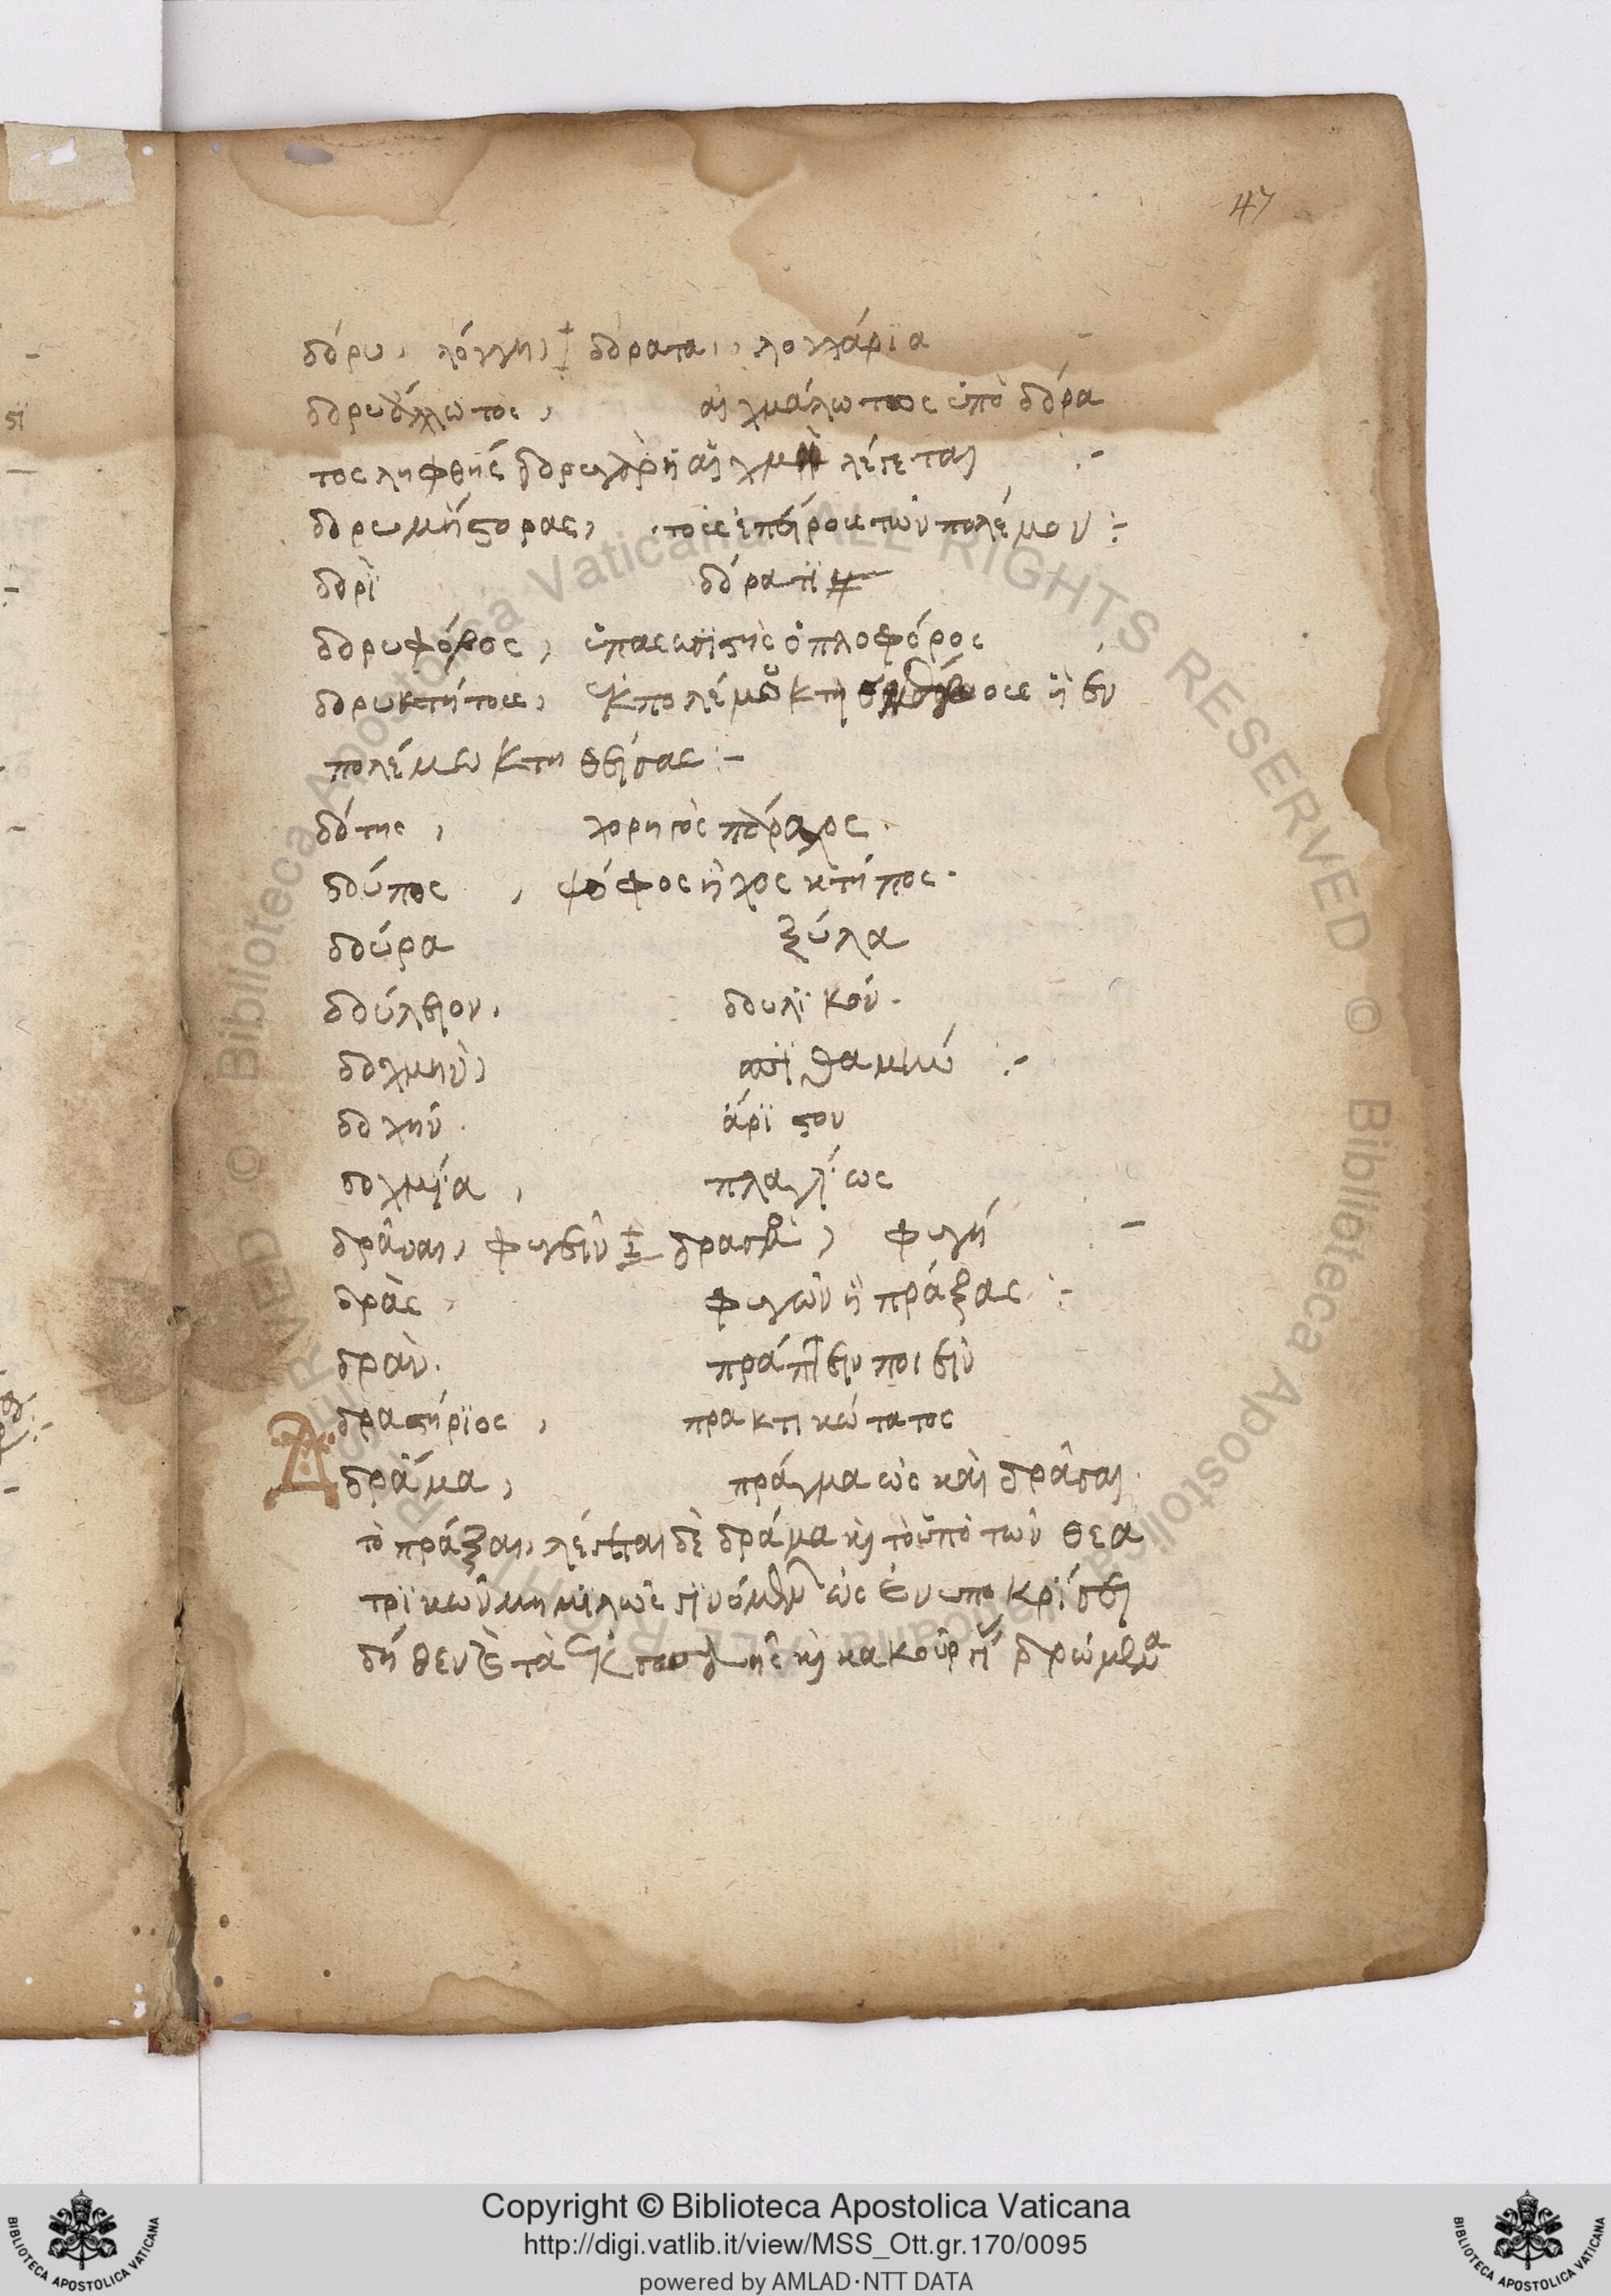 47
δόρυ, λόγχη, δόρατα, λογχάρια
δορυάλωτος, αἰχμάλωτος ὑπὸ δόρα
τος ληφθεὶς δόρυ γὰρ ἡ αἰχμὴ λέγεται
δορυμήστορας, τοὺς ἐμπείρους τῶν πολέμου :-
δορὶ δόρατι
δορυφόρος, ὑπασπιστὴς ὁπλοφόρος
δορυκτήτους, ἐκ πολέμου ἢ ἐν
πολέμω κτηθείσας :-
δότης, χορηγὸς πάροχος.
δοῦπος, ψόφος ἦχος κτύπος.
δοῦρα ξύλα
δούλειον, δουλικόν.
δοχμὴν, σπιθαμὴν :-
δοχήν. ἄριστον
δοχμία, πλαγίως
δρᾶναι, φυγεῖν δρασμὸς, φυγή -
δρὰς, φυγὼν ἢ πράξας :-
δρᾶν. πράττειν ποιεῖν
δραστήριος, πρακτικώτατος
δρᾶμα, πράγμα ὡς καὶ δρᾶσαι.
τὸ πράξαι, λέγεται δὲ δράμα καὶ τὸ ὑπὸ τῶν θεα
τρικῶν μιμηλῶς γινόμενον ὡς ἐν υποκρίσει
δῆθεν καὶ τὰ ἐκ καὶ κακουργί δρώμενα
Copyright © Biblioteca Apostolica Vaticana
http://digi.vatlib.it/view/MSS_Ott.gr.170/0095
powered by AMLAD·NTT DATA
BIBLIOTECA APOSTOLICA VATICANA
BIBLIOTECA APOSTOLICA VATICANA
© Biblioteca Apostolica Vaticana ALL RIGHTS RESERVED
© Biblioteca Apostolica Vaticana ALL RIGHTS RESERVED